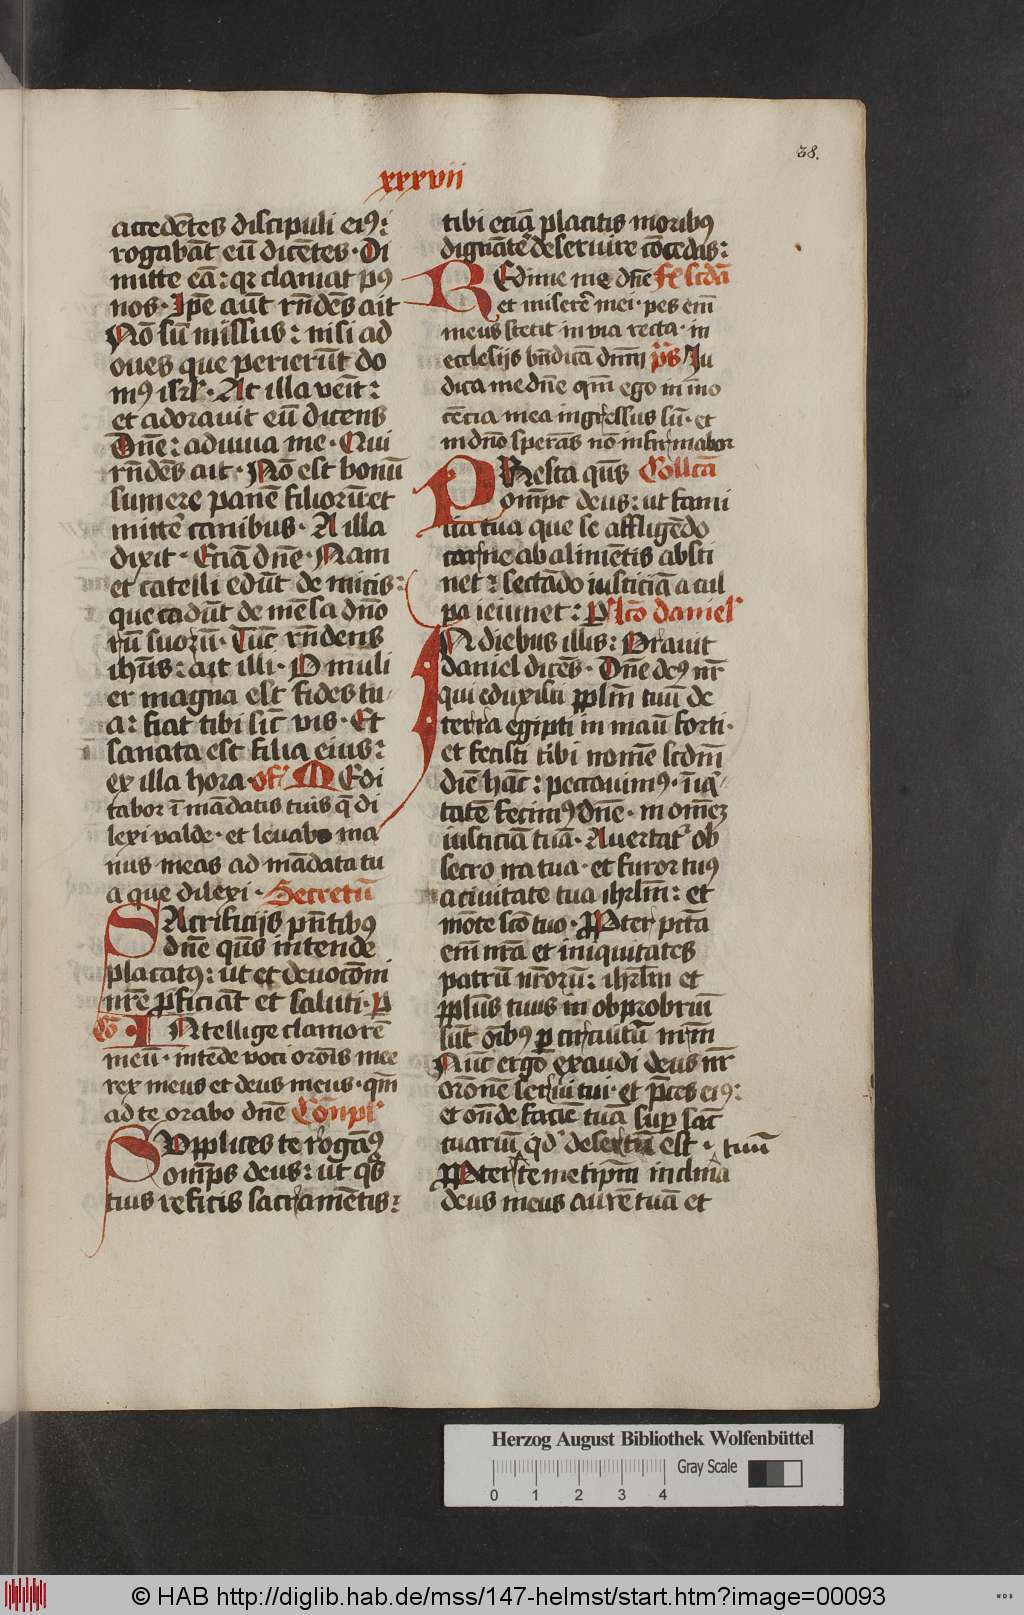 38.
xxxvii
accedētes discipuli eiꝰ:
rogabāt eū dicētes · Di
mitte eā: qꝛ clamat pꝰ
nos · Ipē aūt rn̄dēs ait
Nō sū missus: nisi ad
oues que perierūt do
mꝰ isrł · At illa veīt:
et adorauit eū dicens
Dn̄e: adiuua me · Qui
rn̄dēs ait · Nō est bonū
sumere panē filiorū et
mittē canibus · A illa
dixit · Eciā dn̄e · Nam
et catelli edūt de micis:
que cadūt de mēsa dn̄o
rū suoꝝ · Tūc rn̄dens
ihūs: ait illi · O muli
er magna est fides tu
a: fiat tibi sic̄ vis · Et
sanata est filia eius:
ex illa hora · of MEdi
tabor ī mādatis tuis q̄ di
lexi valde · et leuabo ma
nus meas ad mādata tu
a que dilexi · Secretū
SAcrificijs pn̄tibꝰ
dn̄e qūs intende
placatꝰ: ut et deuocōni
nr̄e ꝓficiāt et saluti · P
Cō · INtellige clamorē
meū · intēde voci orōis mee
rex meus et deus meus · qm̄
ad te orabo dn̄e Cōmpl
SUpplices te rogāꝰ
omp̄s deus: ut qōs
tuis reficis sacramētis:
tibi eciā placitis moribꝰ
dignāt̄ deseruire cōcedas:
REdime me dn̄e Fe scdā
et miserē mei · pes em̄
meus stetit in via recta · in
ecclesijs bn̄dicā dn̄m p̄s Iu
dica me dn̄e qm̄ ego in ino
cētia mea ingressus sū · et
in dn̄o sperās nō infirmabor
PResta qūs Collcā
omp̄c deus: ut fami
lia tua que se affligēdo
carne ab alimētis absti
net: sectādo iusticiā a cul
pa ieiunet: P Lcō daniel
IN diebus illis: Orauit
daniel dicēs · Dn̄e deꝰ nr̄
qui eduxisti pplm̄ tuū de
terra egipti in manū forti ·
et fecisti tibi nomē scdm̄
diē hāc: peccauimꝰ · īiq
tatē fecimꝰ dn̄e · in om̄eꝫ
iusticiā tuā · Auertat᷑ ob
secro ira tua · et furor tuꝰ
a ciuitate tua ihrlm̄: et
mōte scō tuo · Ppter pctā
em̄ nr̄a et iniquitates
patrū nr̄orū: ihrlm̄ et
pplūs tuus in obprobriū
sūt oībꝰ ꝑ circuitū nr̄m
Nūc ergo exaudi deus nr̄
orōnē serui tui · et p̄ces eiꝰ:
et on̄de faciē tuā sup sāc
tuariū qd̓ desertū est · tuū
Ppter temetip̄m inclina
deus meus aurē tuā et
Herzog August Bibliothek Wolfenbüttel
Gray Scale
0 1 2 3 4
© HAB http://diglib.hab.de/mss/147-helmst/start.htm?image=00093